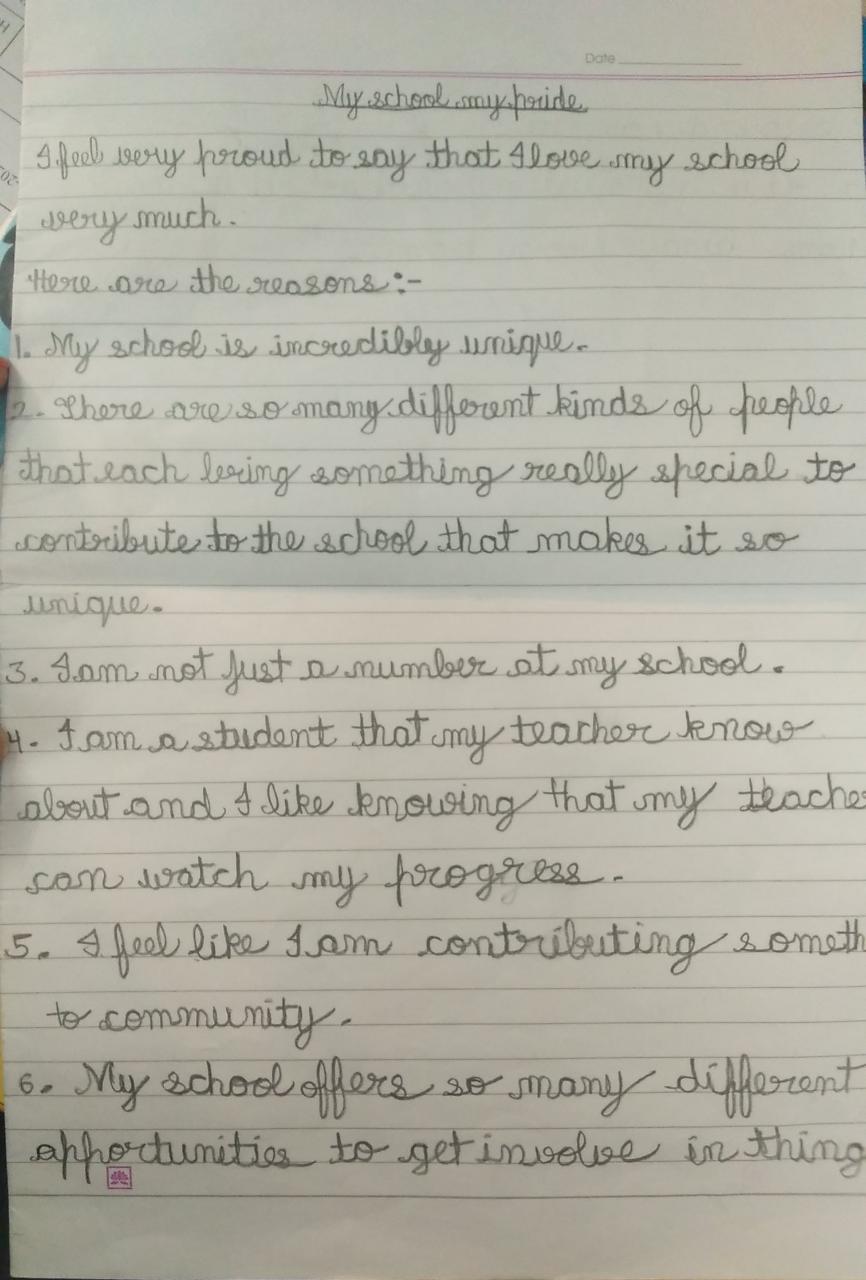 Date
My school my pride
I feel very proud to say that I love my school
very much.
Here are the reasons:-
1. My school is incredibly unique.
2. There are so many different kinds of people
that each bring something really special to
contribute to the school that makes it so
unique.
3. I am not just a number at my school.
4. I am a student that my teacher know
about and I like knowing that my teache
can watch my progress.
5. I feel like I am contributing someth
to community.
6. My school offers so many different
apportunities to get involve in thing